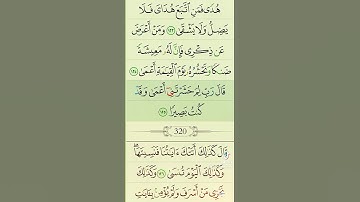 هُدًى فَمَنِ ٱتَّبَعَ هُدَاىَ فَلَا
يَضِلُّ وَلَا يَشْقَىٰ ١٢٣ وَمَنْ أَعْرَضَ
عَن ذِكْرِى فَإِنَّ لَهُۥ مَعِيشَةً
ضَنكًا وَنَحْشُرُهُۥ يَوْمَ ٱلْقِيَٰمَةِ أَعْمَىٰ ١٢٤
قَالَ رَبِّ لِمَ حَشَرْتَنِىٓ أَعْمَىٰ وَقَدْ
كُنتُ بَصِيرًا ١٢٥
320
قَالَ كَذَٰلِكَ أَتَتْكَ ءَايَٰتُنَا فَنَسِيتَهَا
وَكَذَٰلِكَ ٱلْيَوْمَ تُنسَىٰ ١٢٦ وَكَذَٰلِكَ
نَجْزِى مَنْ أَسْرَفَ وَلَمْ يُؤْمِنۢ بِـَٔايَٰتِ